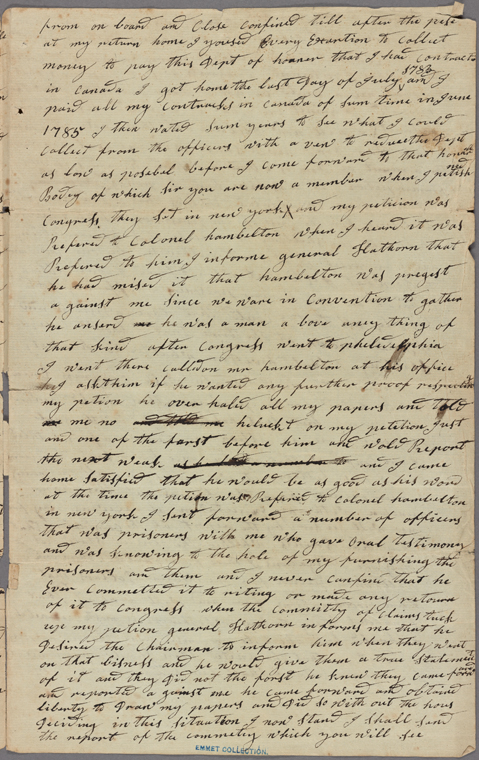 from on board and Close Confined till after the pese
at my return home I youesed Every Exartion to Collect
money to pay this Dept of honner that I had Contracted
in Canada I got home the last Day of July 1783 and I
paid all my Contracks in Canada of sum time in June
1785 I then wated Sum years to See what I Could
Collect from the officers with a veu to reduse the Dept
as low as posebal before I Come forward to that honred
Bodey of which Sir you are now a member when I petish
oned
Congress they Sot in new york and my peticion was
Refered to Colonel hambelton when I heard it was
Prefered to him I informe general Hathorn that
he had mised it that hambelton was pregest
a gainst me Since we ware in Convention to gather
he anserd he was a man a bove aney thing of
that kind after Congress went to pheledelphia
I went there Calld on mr hambelton at his office
I askt him if he wanted any further proof respecting
my petion he over haled all my papers and told
me no he luckt on my petition Just
and one of the farst before him and wold Report
the next weak and I Came
home Satisfied that he would be as good as his word
at the time the petion was Prefared to Colonel hambelton
in new york I Sent forward a number of officers
that was prisoners with me who gave oral testimoney
and was knowing to the hole of my furnishing the
prisoners and them and I never Canfind that he
Ever Committed it to riting or made any retourn
of it to Congress when the Committy of Claims tuck
up my petion general Hathorn informs me that he
Desired the Chairman to inform him when they went
on that bisness and he would give them a true Statement
of it and they Did not the farst he knew they Came forrd
and
and reported a gainst me he Came forward and obtaind
liberty to Draw my papers and Did So with out the hous
Deciding in this Situation I now Stand I Shall Send
the report of the Commetey which you will See
EMMET COLLECTION.